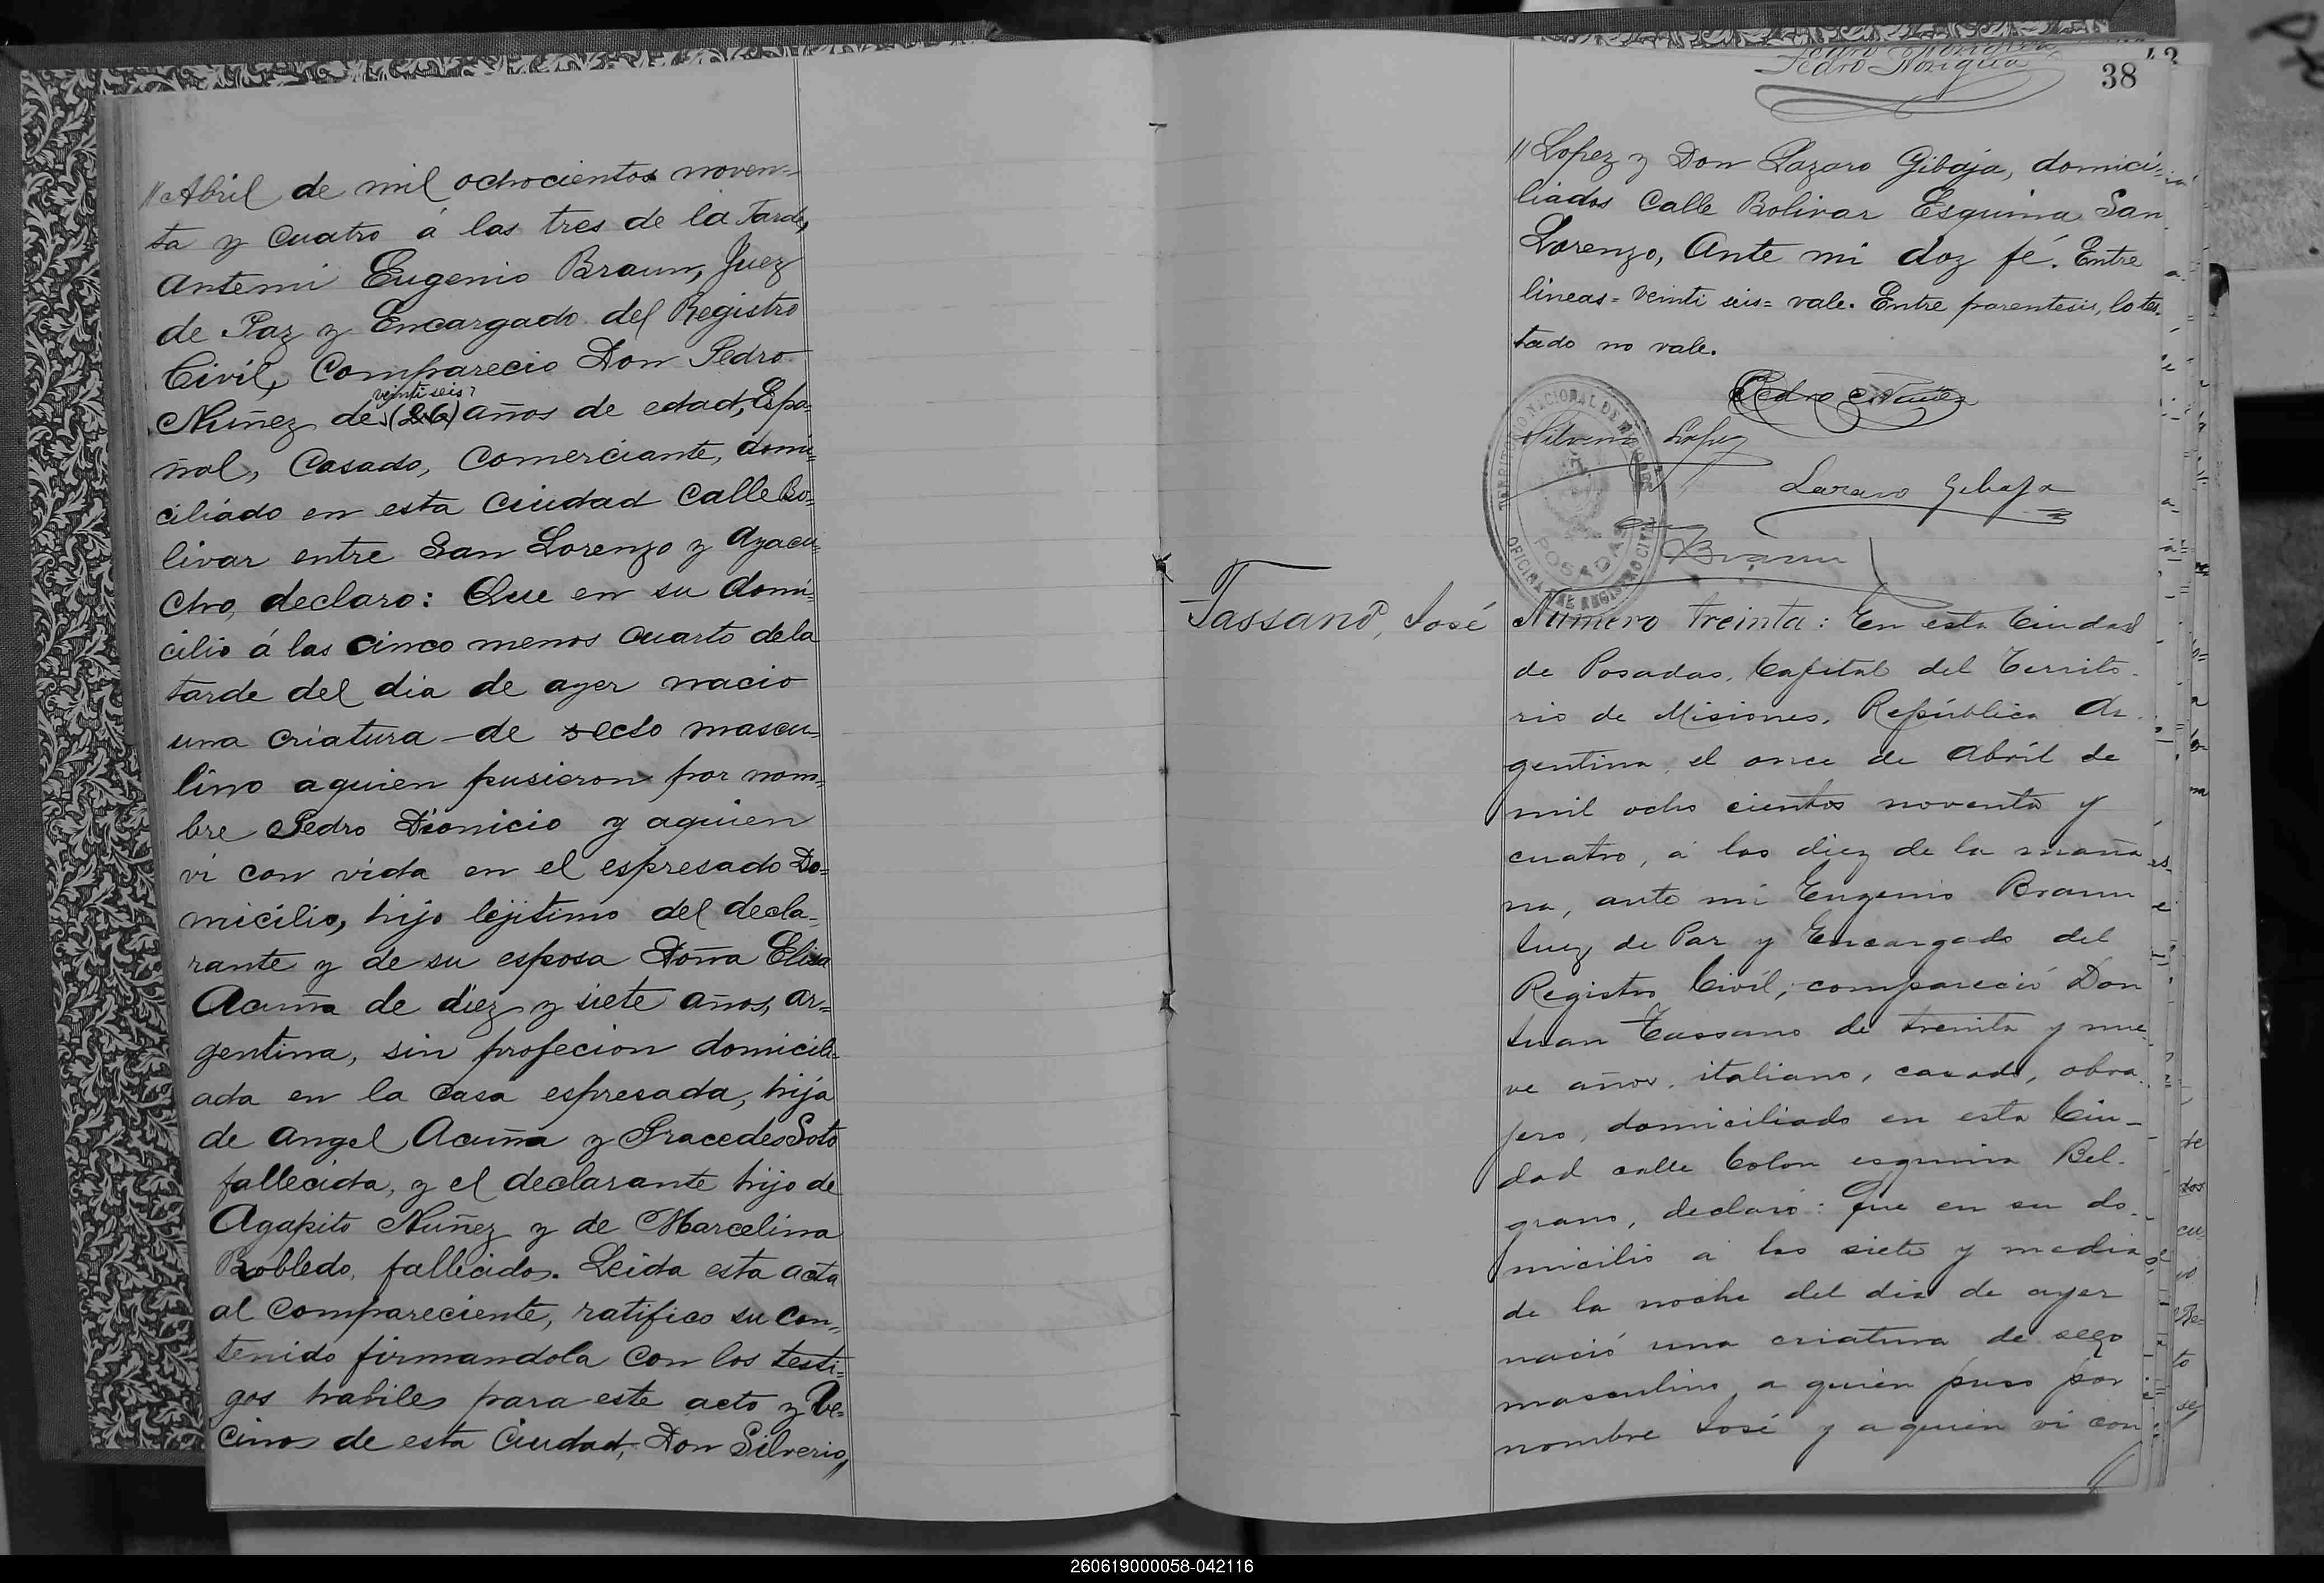 // Abril de mil ochocientos noven=
ta y cuatro á las tres de la tarde,
antemi Eugenio Braun, Juez
de Paz y Encargado del Registro
Civil, Comparecio Don Pedro
veinti seis
Nuñez de (26) años de edad, Espa=
ñol, Casado, Comerciante, domi=
ciliado en esta Ciudad Calle Bo=
livar entre San Lorenzo y Ayacu=
cho, declaro: Que en su domi=
cilio á las cinco menos cuarto dela
tarde del dia de ayer nacio
una criatura de secso mascu=
lino aquien pusieron por nom=
bre Pedro Dionicio y aquien
vi con vida en el espresado Do=
micilio, hijo lejitimo del decla=
rante y de su esposa Doña Elisa
Acuña de diez y siete años, ar=
gentina, sin profecion domicili=
ada en la Casa espresada, hija
de Angel Acuña y Pracedes Soto
fallecida, y el declarante hijo de
Agapito Nuñez y de Marcelina
Robledo, fallecidos. Leida esta acta
al Compareciente, ratifico su Con=
tenido firmandola Con los testi=
gos habiles para este acto y Ve=
cinos de esta Ciudad, Don Silverio //
Pedro Noziglia
38
// Lopez y Don Lazaro Gibaja, domici=
liados Calle Bolivar Esquina San
Lorenzo, Ante mi doy fé. Entre
lineas = veinti seis = vale. Entre parentesis, lo tes=
tado no vale.
Pedro Nuñez
Silverio Lopez
TERRITORIO NACIONAL DE MISIONES
POSADAS
OFICINA DEL REGISTRO CIVIL
Lazaro Gibaja
Braun
Tassano, José
Número treinta: En esta Ciudad
de Posadas, Capital del Territo-
rio de Misiones, República Ar-
gentina, el once de Abril de
mil ocho cientos noventa y
cuatro, á las diez de la maña
na, ante mi Eugenio Braun
Juez de Paz y Encargado del
Registro Civil, compareció Don
Juan Tassano de treinta y nue
ve años, italiano, casado, obra
jero, domiciliado en esta Ciu-
dad calle Colon esquina Bel-
grano, declaró: Que en su do-
micilio á las siete y media
de la noche del dia de ayer
nació una criatura de sexo
masculino, a quien puso por
nombre José y a quien vi con
260619000058-042116